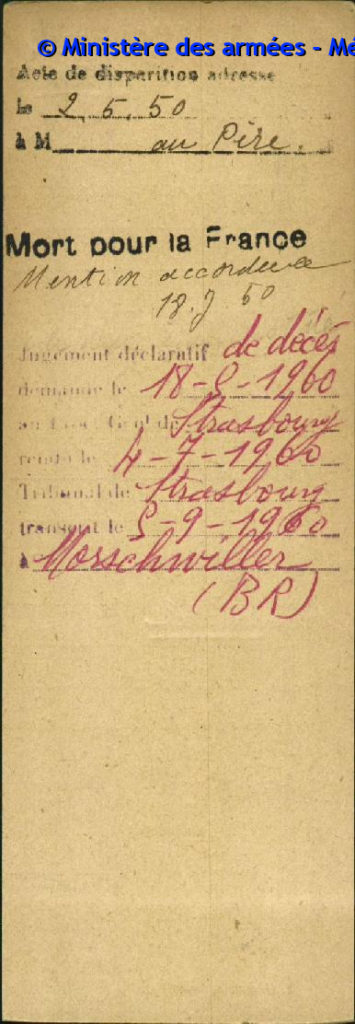 © Ministère des armées - Mé
Acte de disparition adressé
le 2.5.50
à M au Père.
Mort pour la France
Mention accordée
18.7 50
Jugement déclaratif de décès
demandé le 18-8-1960
au Proc. Gral de Strasbourg
rendu le 4-7-1960
Tribunal de Strasbourg
transcrit le 5-9-1960
à Morschwiller
(BR)